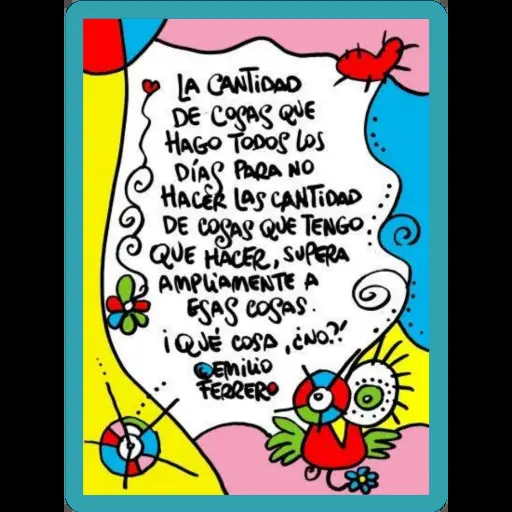 LA CANTIDAD
DE COSAS QUE
HAGO TODOS LOS
DÍAS PARA NO
HACER LAS CANTIDAD
DE COSAS QUE TENGO
QUE HACER, SUPERA
AMPLIAMENTE A
ESAS COSAS.
¡QUÉ COSA, ¿NO?!
©EMILIO
FERRERO